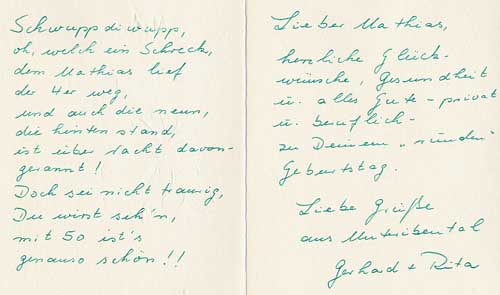 Schwuppdiwupp,
oh, welch ein Schreck,
dem Mathias lief
der 4er weg,
und auch die neun,
die hinten stand,
ist über Nacht davon-
gerannt!
Doch sei nicht traurig,
Du wirst seh'n,
mit 50 ist's
genauso schön!!
Lieber Mathias,
herzliche Glück-
wünsche, Gesundheit
u. alles Gute - privat
u. beruflich -
zu Deinem "runden"
Geburtstag.
Liebe Grüße
aus
Gerhard + Rita